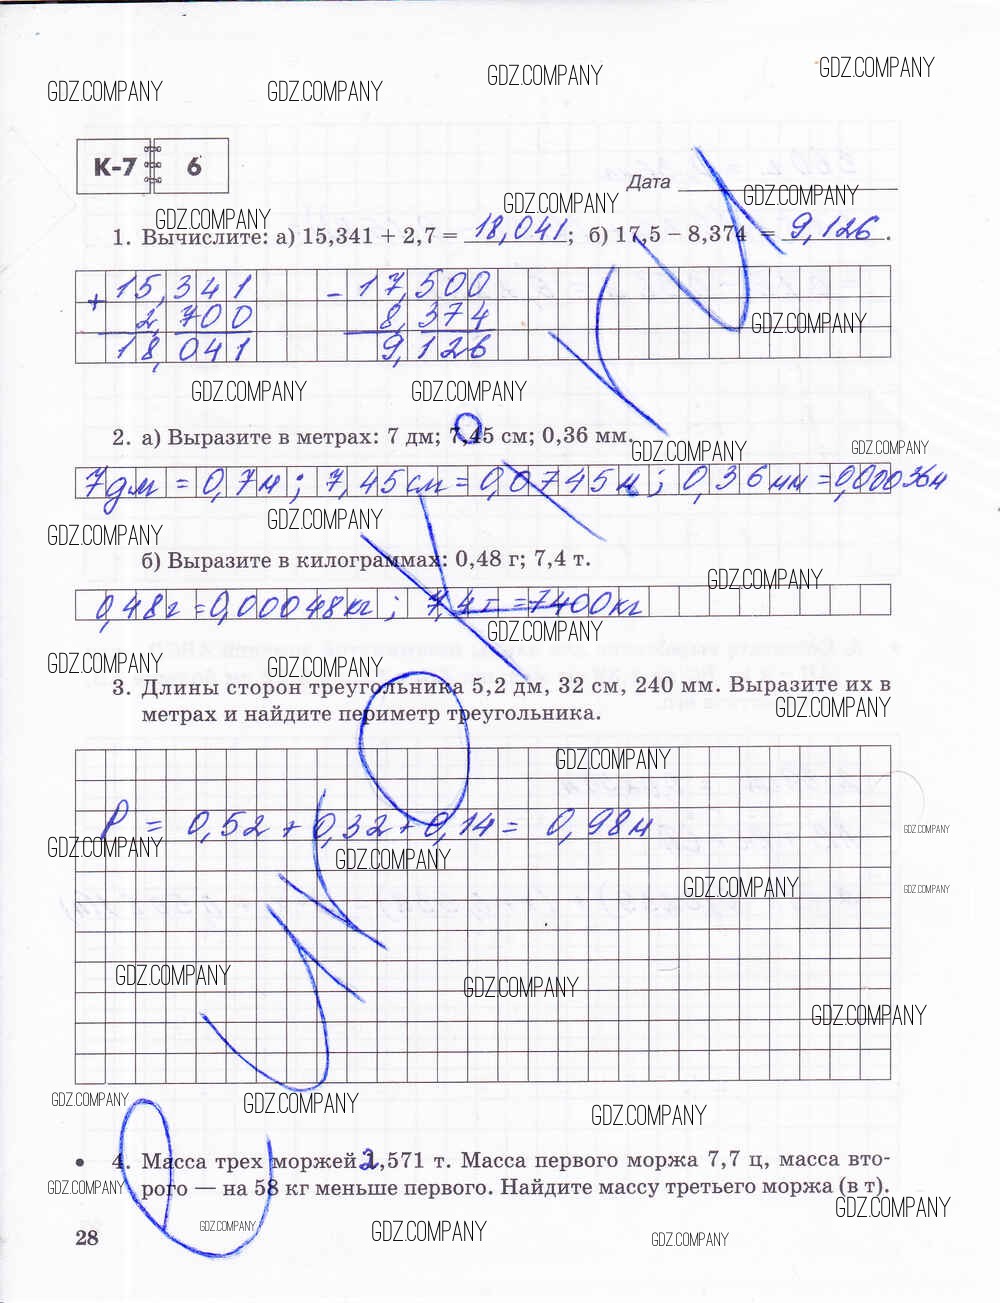 GDZ.COMPANY GDZ.COMPANY GDZ.COMPANY GDZ.COMPANY
К-7 6
Дата
GDZ.COMPANY GDZ.COMPANY GDZ.COMPANY
1. Вычислите: а) 15,341 + 2,7 = 18,041; б) 17,5 – 8,374 = 9,126.
+ 15,341 – 17,500
2,700 8,374
18,041 9,126
GDZ.COMPANY
GDZ.COMPANY GDZ.COMPANY
2. а) Выразите в метрах: 7 дм; 7,45 см; 0,36 мм.
GDZ.COMPANY GDZ.COMPANY
7дм = 0,7м; 7,45см = 0,0745м; 0,36мм = 0,00036м
GDZ.COMPANY GDZ.COMPANY
б) Выразите в килограммах: 0,48 г; 7,4 т.
GDZ.COMPANY
0,48г = 0,00048кг; 7,4т = 7400кг
GDZ.COMPANY
GDZ.COMPANY GDZ.COMPANY
3. Длины сторон треугольника 5,2 дм, 32 см, 240 мм. Выразите их в
метрах и найдите периметр треугольника.
GDZ.COMPANY
GDZ.COMPANY
P = 0,52 + 0,32 + 0,14 = 0,98м
GDZ.COMPANY
GDZ.COMPANY GDZ.COMPANY
GDZ.COMPANY GDZ.COMPANY
GDZ.COMPANY GDZ.COMPANY
GDZ.COMPANY
GDZ.COMPANY GDZ.COMPANY GDZ.COMPANY
• 4. Масса трех моржей 2,571 т. Масса первого моржа 7,7 ц, масса вто-
рого — на 58 кг меньше первого. Найдите массу третьего моржа (в т).
GDZ.COMPANY GDZ.COMPANY
28
GDZ.COMPANY GDZ.COMPANY GDZ.COMPANY